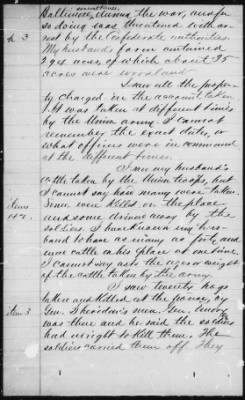 Baltimore, during the war, and for
so doing was threatened with ar-
rest by the Confederate authorities.
My husband's farm contained
294 acres of which about 35
acres were woodland
I saw all the proper-
ty charged in the account taken
It was taken at different times
by the Union army. I cannot
remember the exact dates, or
what officers were in command
at the different times.
I saw my husband's
cattle taken by the Union troops, but
I cannot say how many were taken.
Some were killed on the place
and some driven away by the
soldiers. I have known my hus-
band to have as many as forty and
nine cattle on his place at one time.
I cannot say as to the age or weight
of the cattle taken by the army.
I saw twenty hogs
taken and killed at the place, by
Gen. Sheridan's men. Gen. Emory
was there and he said the soldiers
had no right to kill them. The
soldiers carried them off. They
Item
Item 3